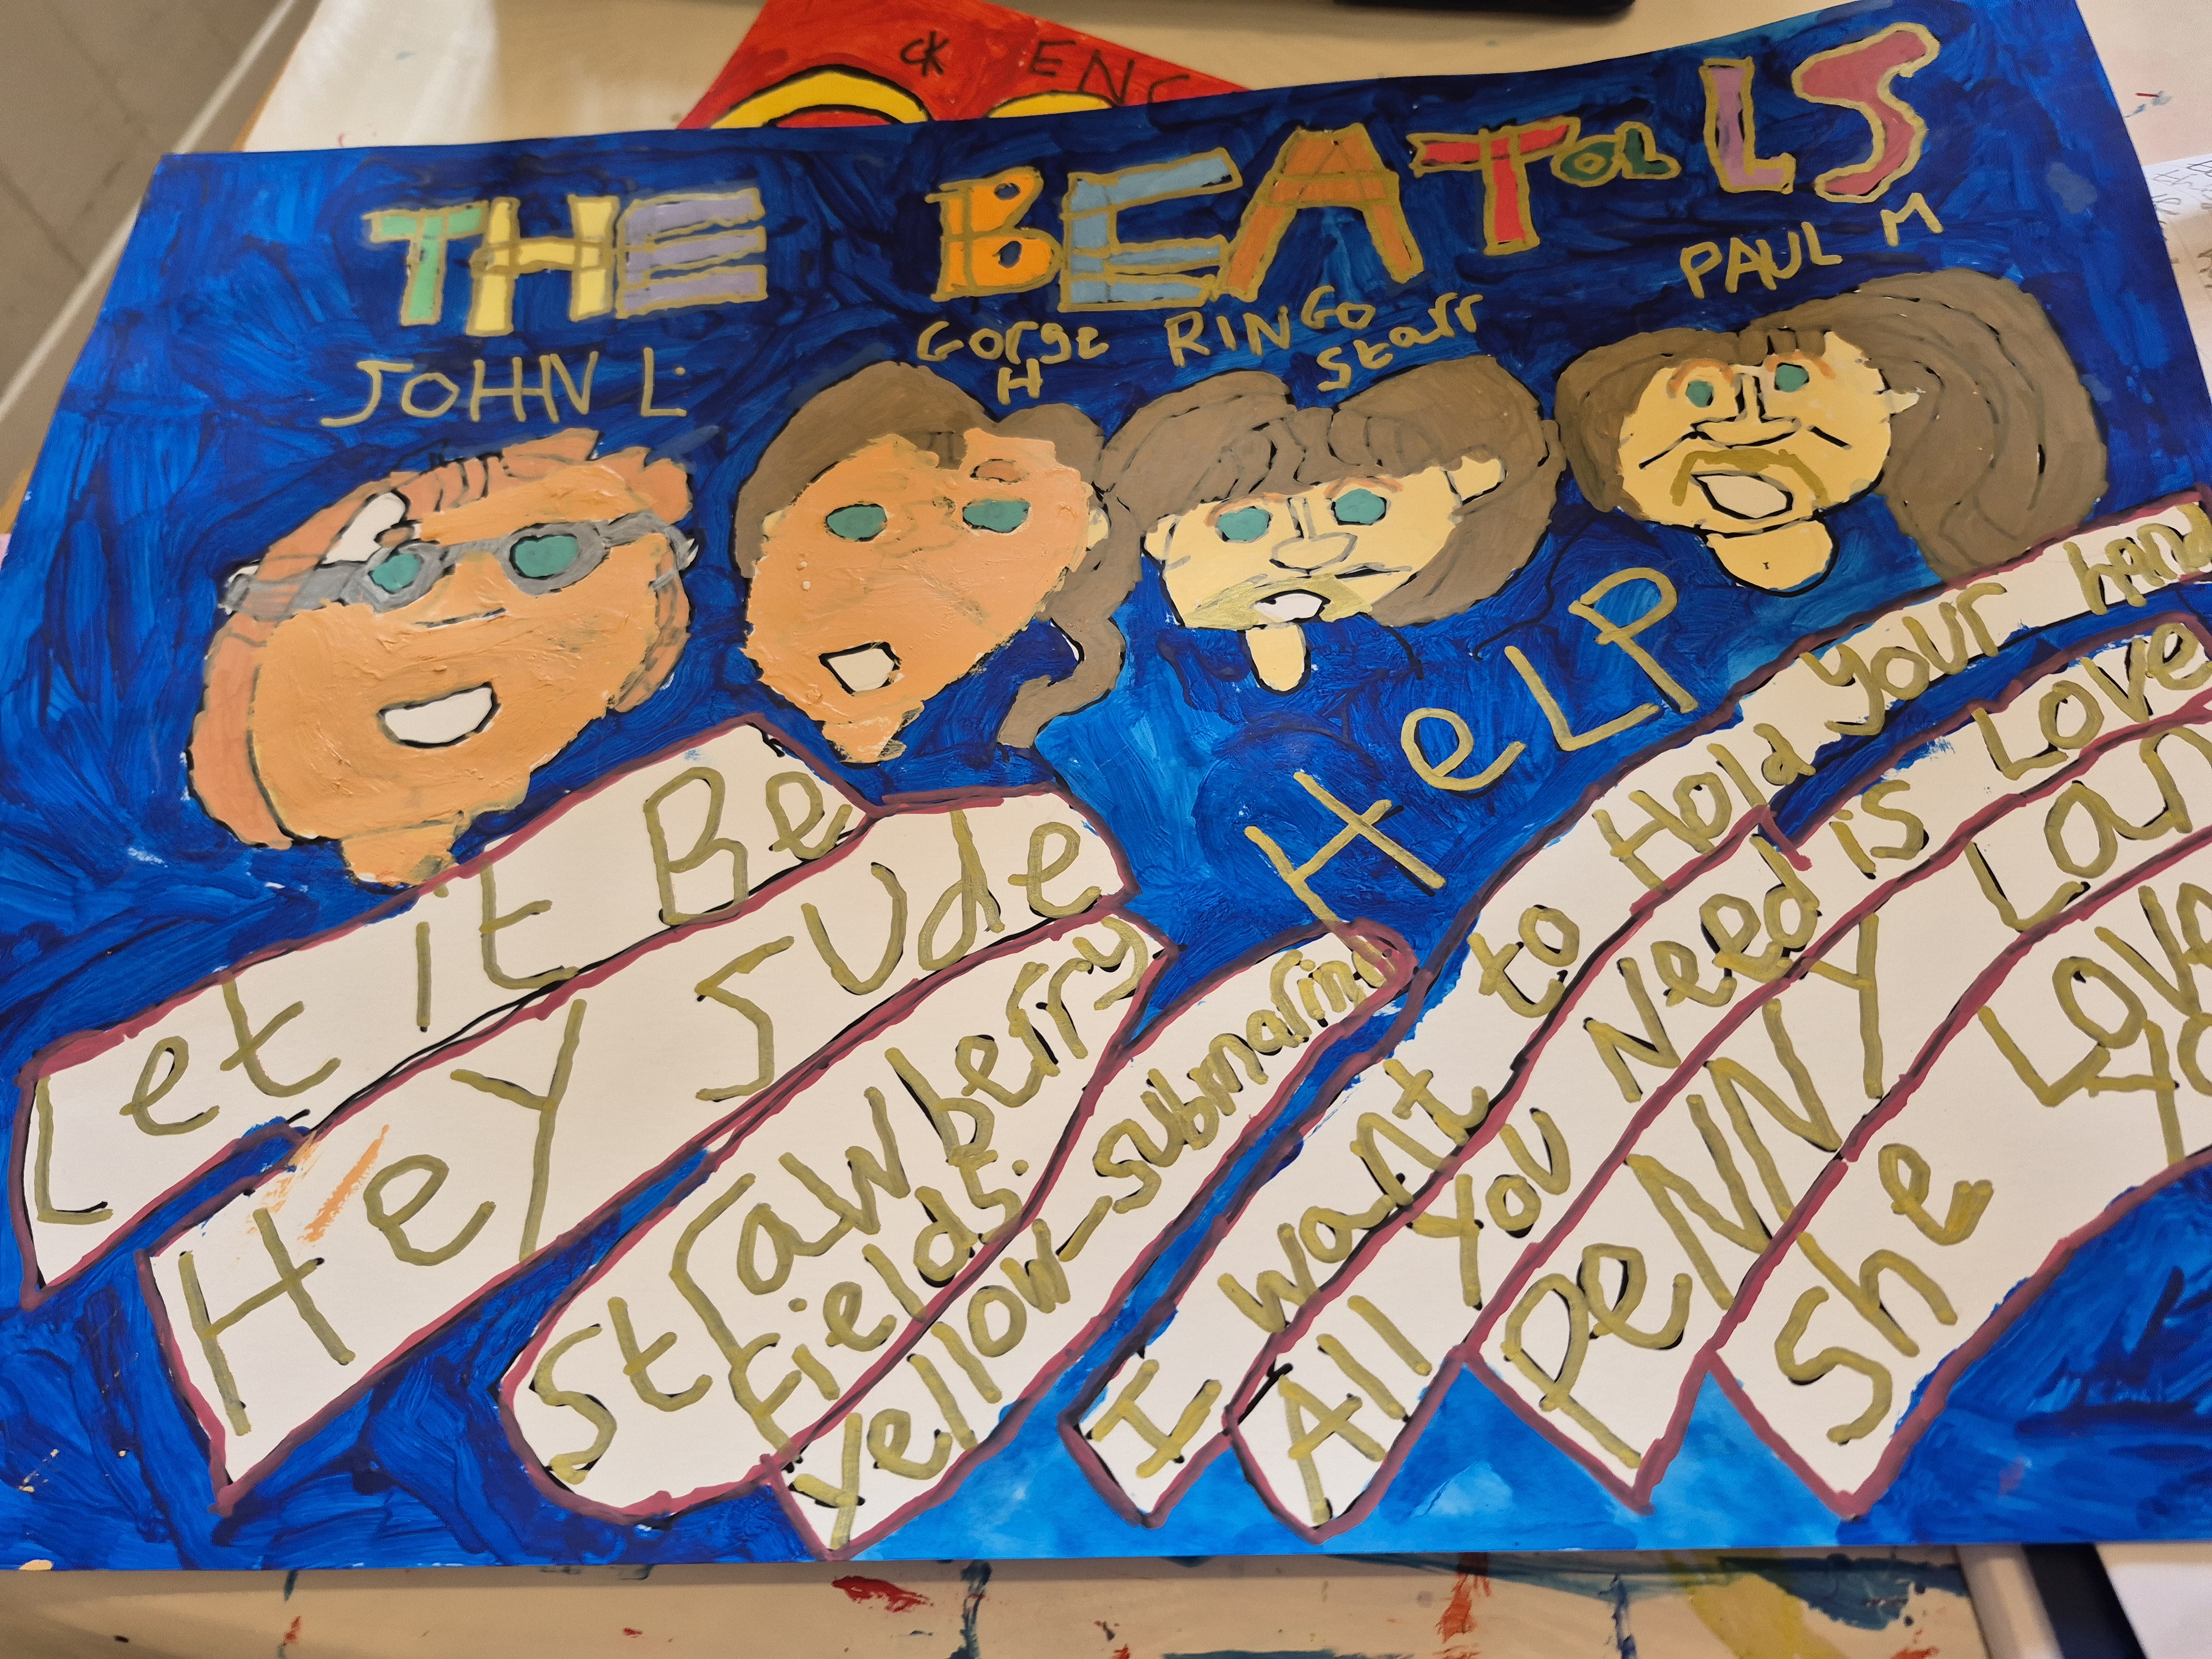 CK ENG
THE BEATOLLS
JOHN L.
Gorge
H
RINGO
Starr
PAUL M
HeLP
Let it Be
HeY JUde
Strawberry
Fields.
Yellow Submarine
I want to Hold Your hand
All You Need is Love
PeNNY Lan
She Love
Yo